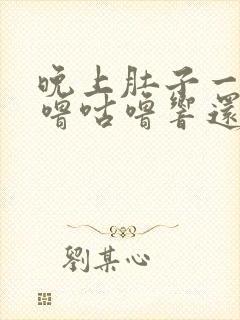 晚上肚子一
嚕咕嚕響還
劉某心